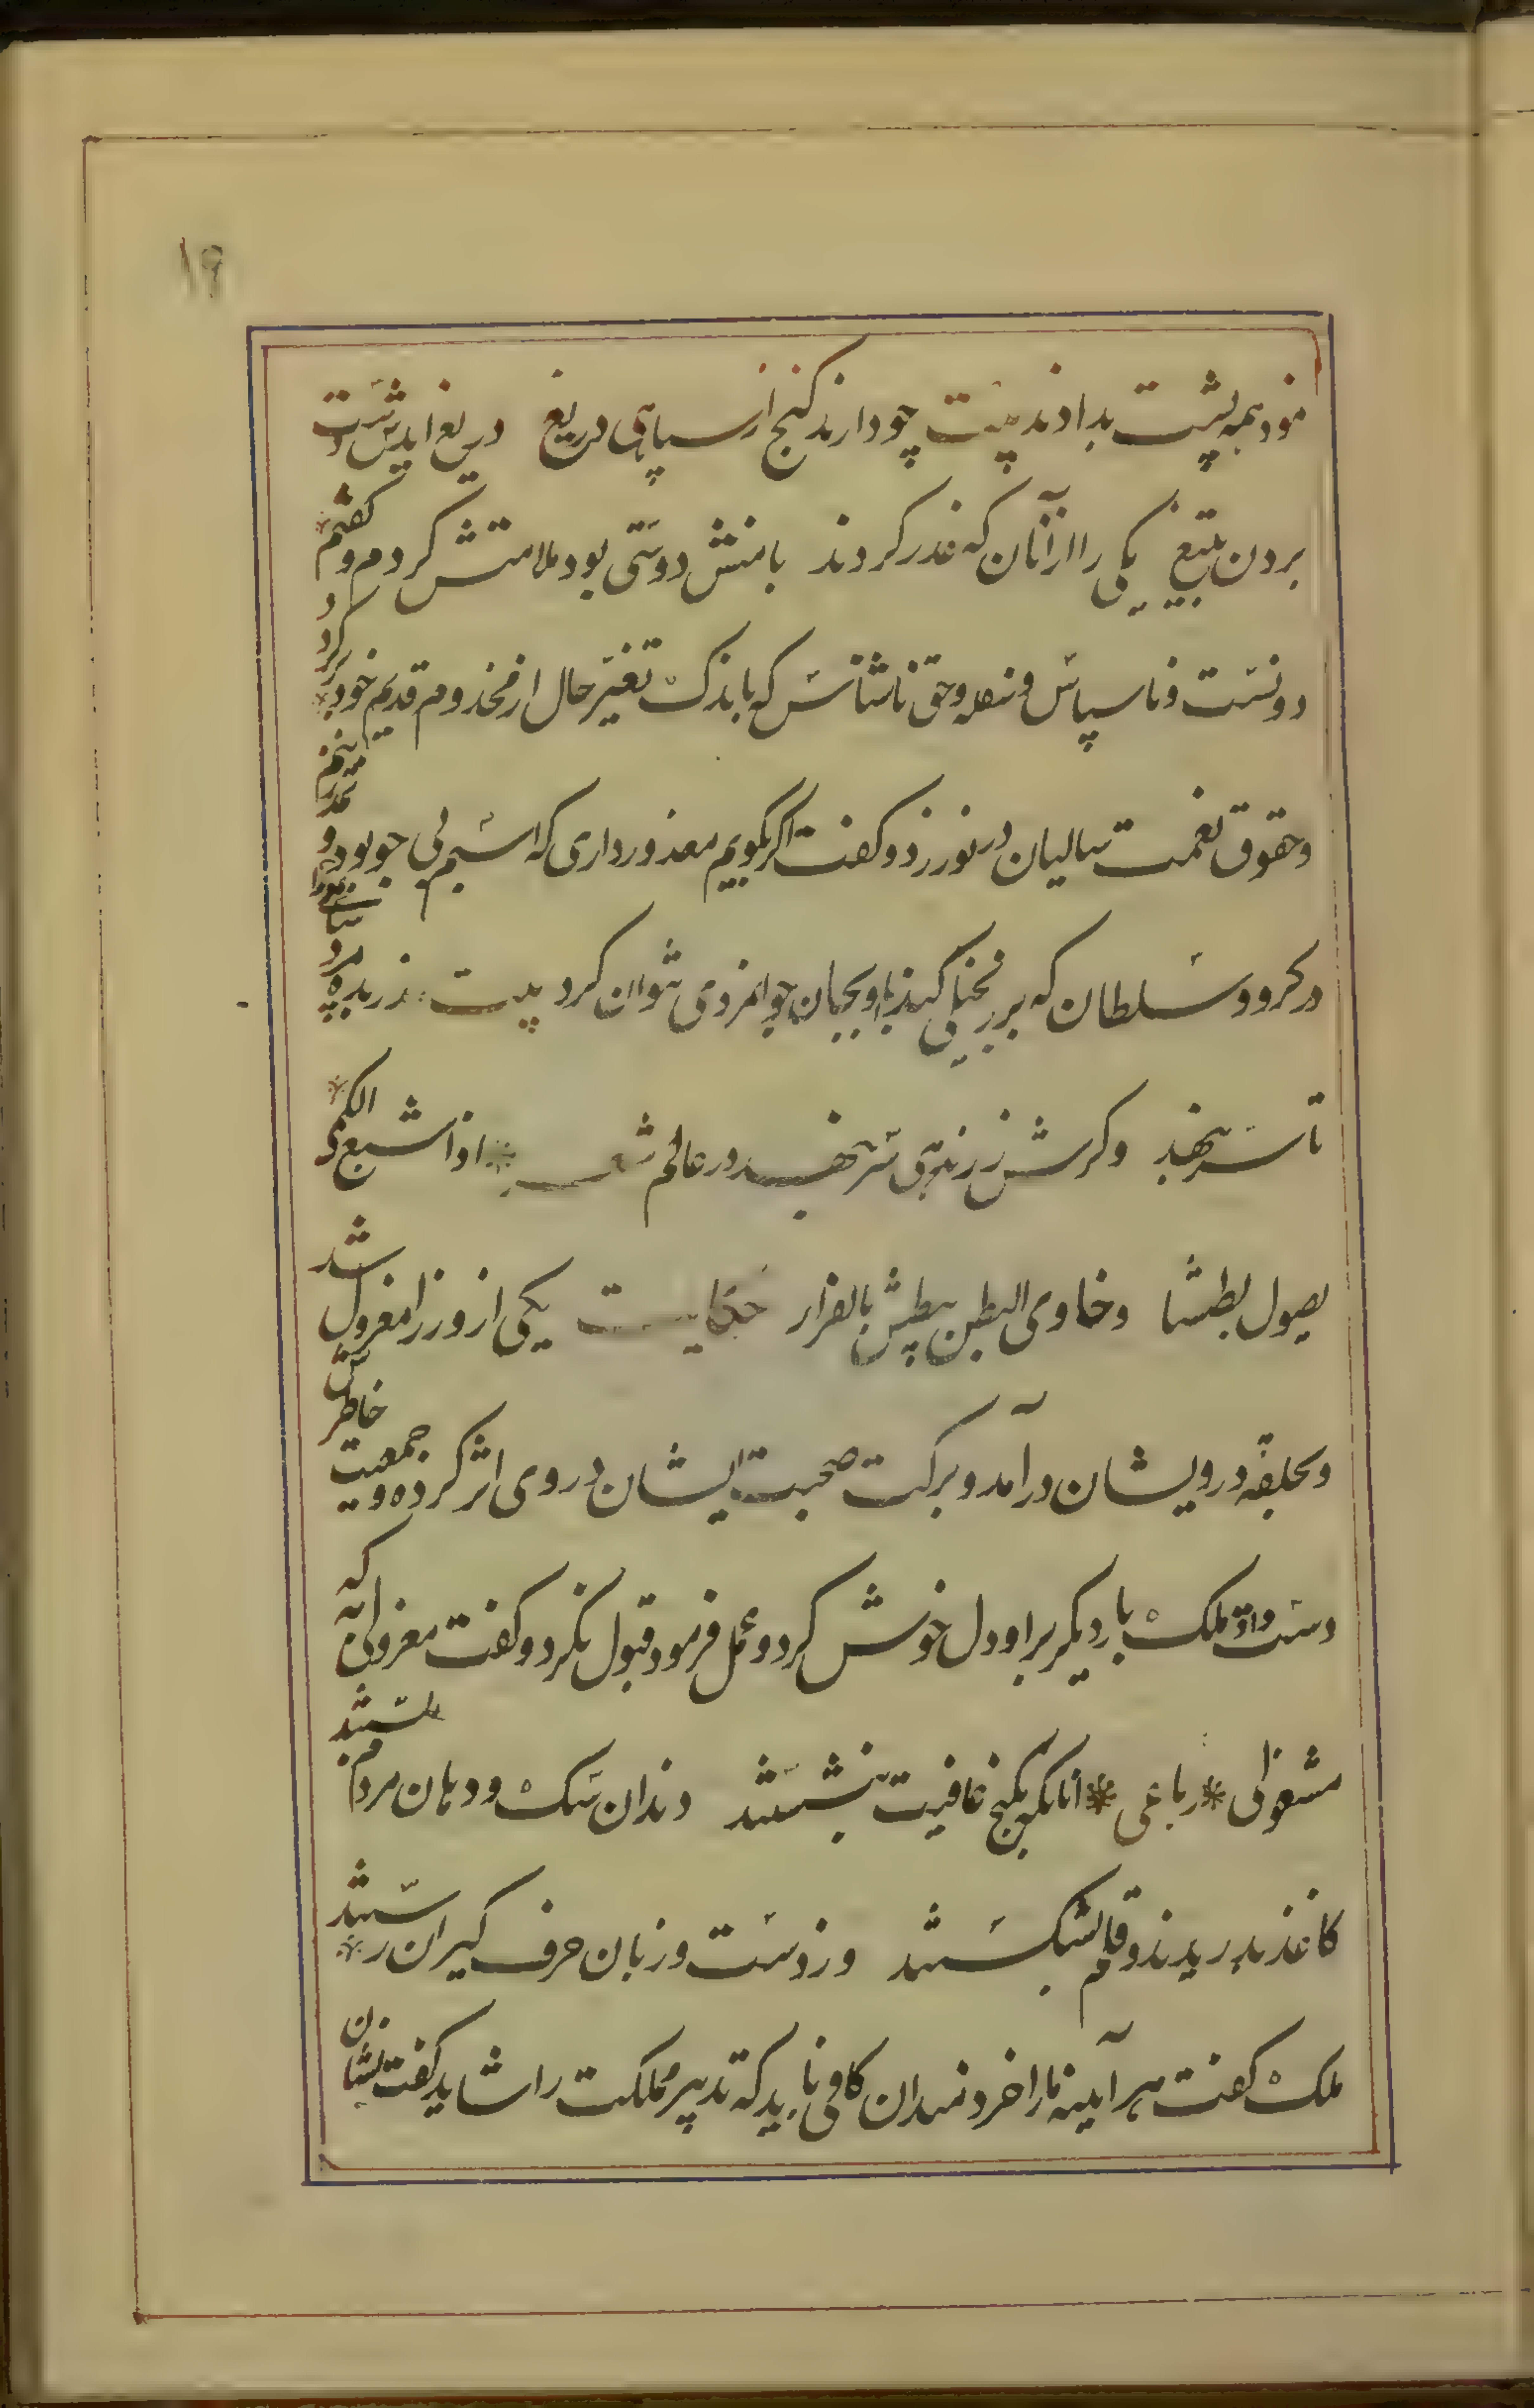 ۱۹
نمود همه پشت بدادند بیت چو دارند کنج از سپاهی دریغ دریغ ایدش دست
بردن بتیغ یکی را از آنان که غدر کردند با منش دوستی بود ملامتش کردم و گفتم
دونست و ناسپاس و سفله و حق ناشناس که باندک تغیر حال از مخدوم قدیم خود بر کردد
و حقوق نعمت سالیان در نوردد و کفت اکر بکویم معذور داری که اسبم بی جو بود و نمد زینم
در کرو و سلطان که بزر بخیلی کند با او بجان جوانمردی نتوان کرد بیت زر بده مرد سپاهی را
تا سر بنهد وکرش زر ندهی سر بنهد در عالم شعر اذا شبع الکمی
یصول بطشا وخاوی البطن یبطش بالفرار حکایت یکی از وزرا معزول شد
و بحلقه درویشان درآمد و برکت صحبت ایشان در وی اثر کرد و جمعیت خاطرش
دست داد ملک بار دیکر بر او دل خوش کرد و عمل فرمود قبول نکرد و کفت معزولی به که
مشغولی رباعی آنانکه بکنج عافیت بنشستند دندان سک و دهان مردم بستند
کاغذ بدریدند و قلم بشکستند وز دست و زبان حرف کیران رستند
ملک کفت هر آینه ما را خردمندان کافی باید که تدبیر مملکت را شاید کفت نشان